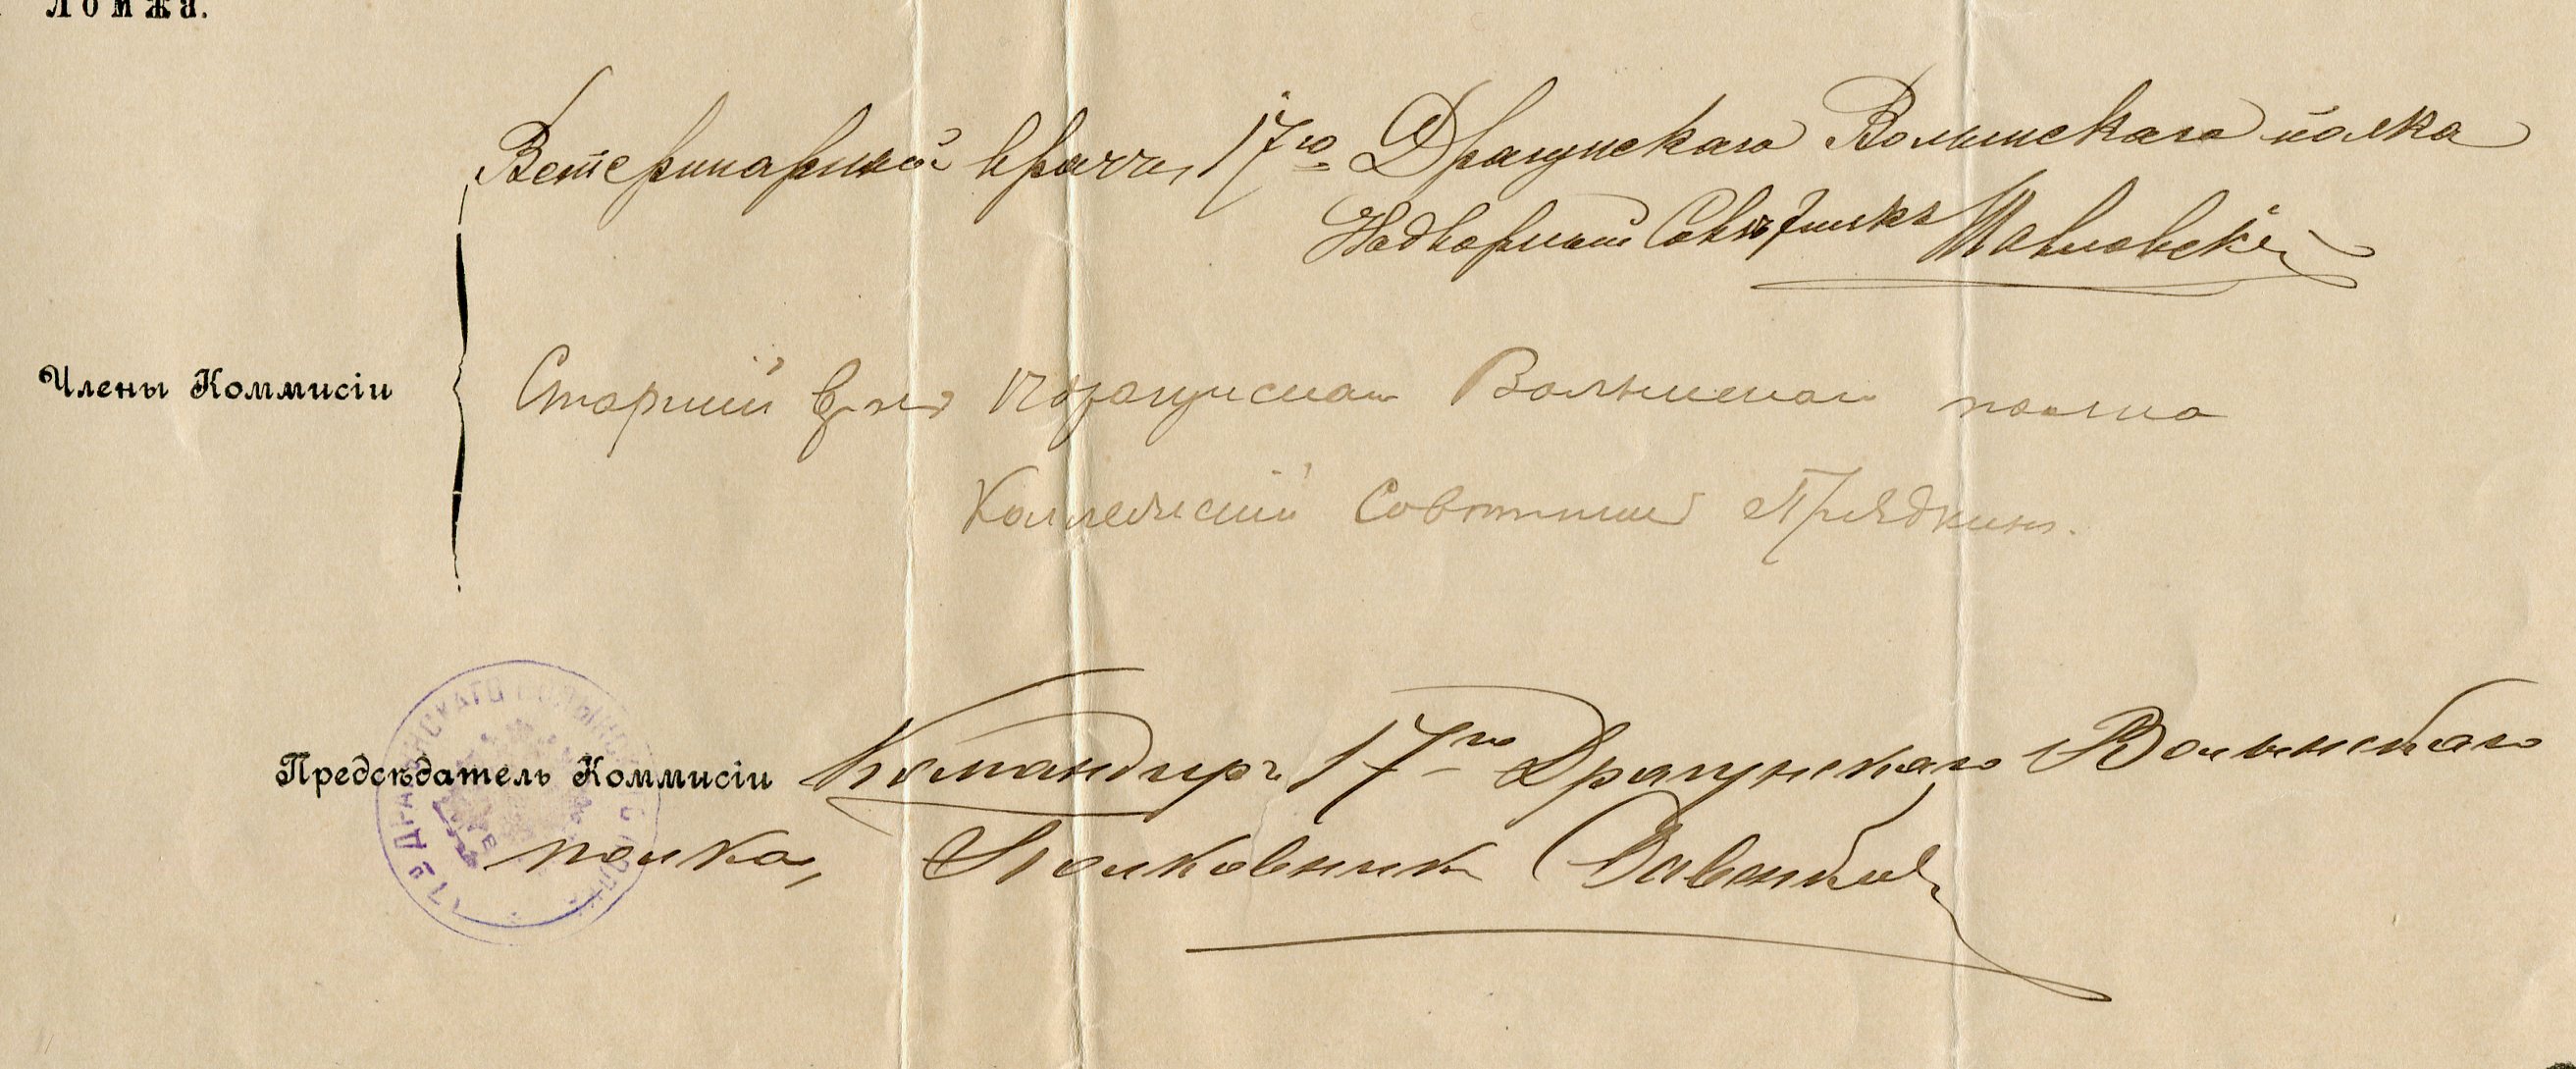 Ломжа.
Ветеринарный врачъ 17го Драгунскаго Волынскаго полка
Надворный Совѣтникъ Павловскій
Члены Коммисіи
Старшій врачъ 17 драгунскаго Волынскаго полка
Коллежскій Совѣтникъ Прядкинъ.
Предсѣдатель Коммисіи Командиръ 17го Драгунскаго Волынскаго
полка, Полковникъ
17го ДРАГУНСКАГО ВОЛЫНСКАГО ПОЛКА